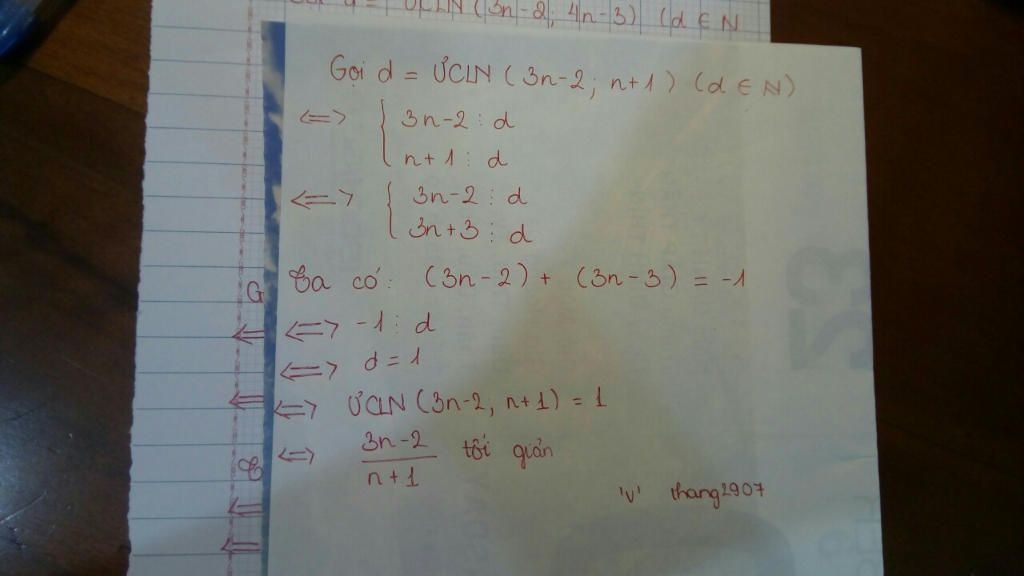 d = ƯCLN (3n-2; 4n-3) (d ∈ N
Gọi d = ƯCLN (3n-2; n+1) (d ∈ N)
<=> { 3n-2 ⋮ d
n+1 ⋮ d
<=> { 3n-2 ⋮ d
3n+3 ⋮ d
Ta có: (3n-2) + (3n-3) = -1
<=> -1 ⋮ d
<=> d = 1
<=> ƯCLN (3n-2, n+1) = 1
<=> 3n-2 / n+1 tối giản
'v' thang2907